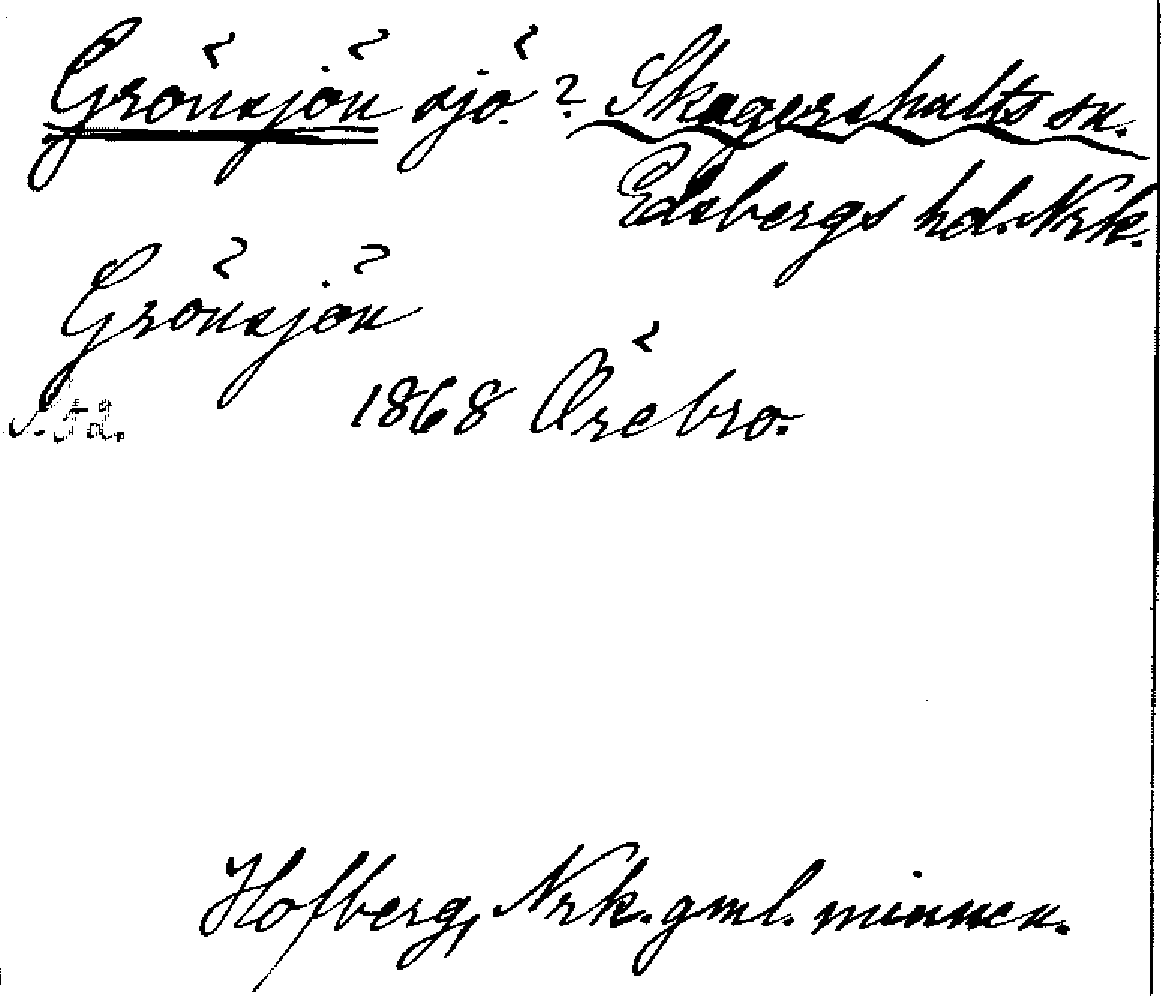 Grönsjön sjö? Skagershults sn.
Edsbergs hd. Nrk.
Grönsjön
1868 Örebro.
Hofberg, Nrk. gml. minnen.